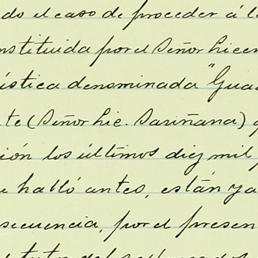 do el caso de proceder á l
nstituida por el Señor Licen
ística denominada "Gua
te (Señor Lic. Sariñana) q
ión los últimos diez mil p
e habló antes, están ya
secuencia, por el presen